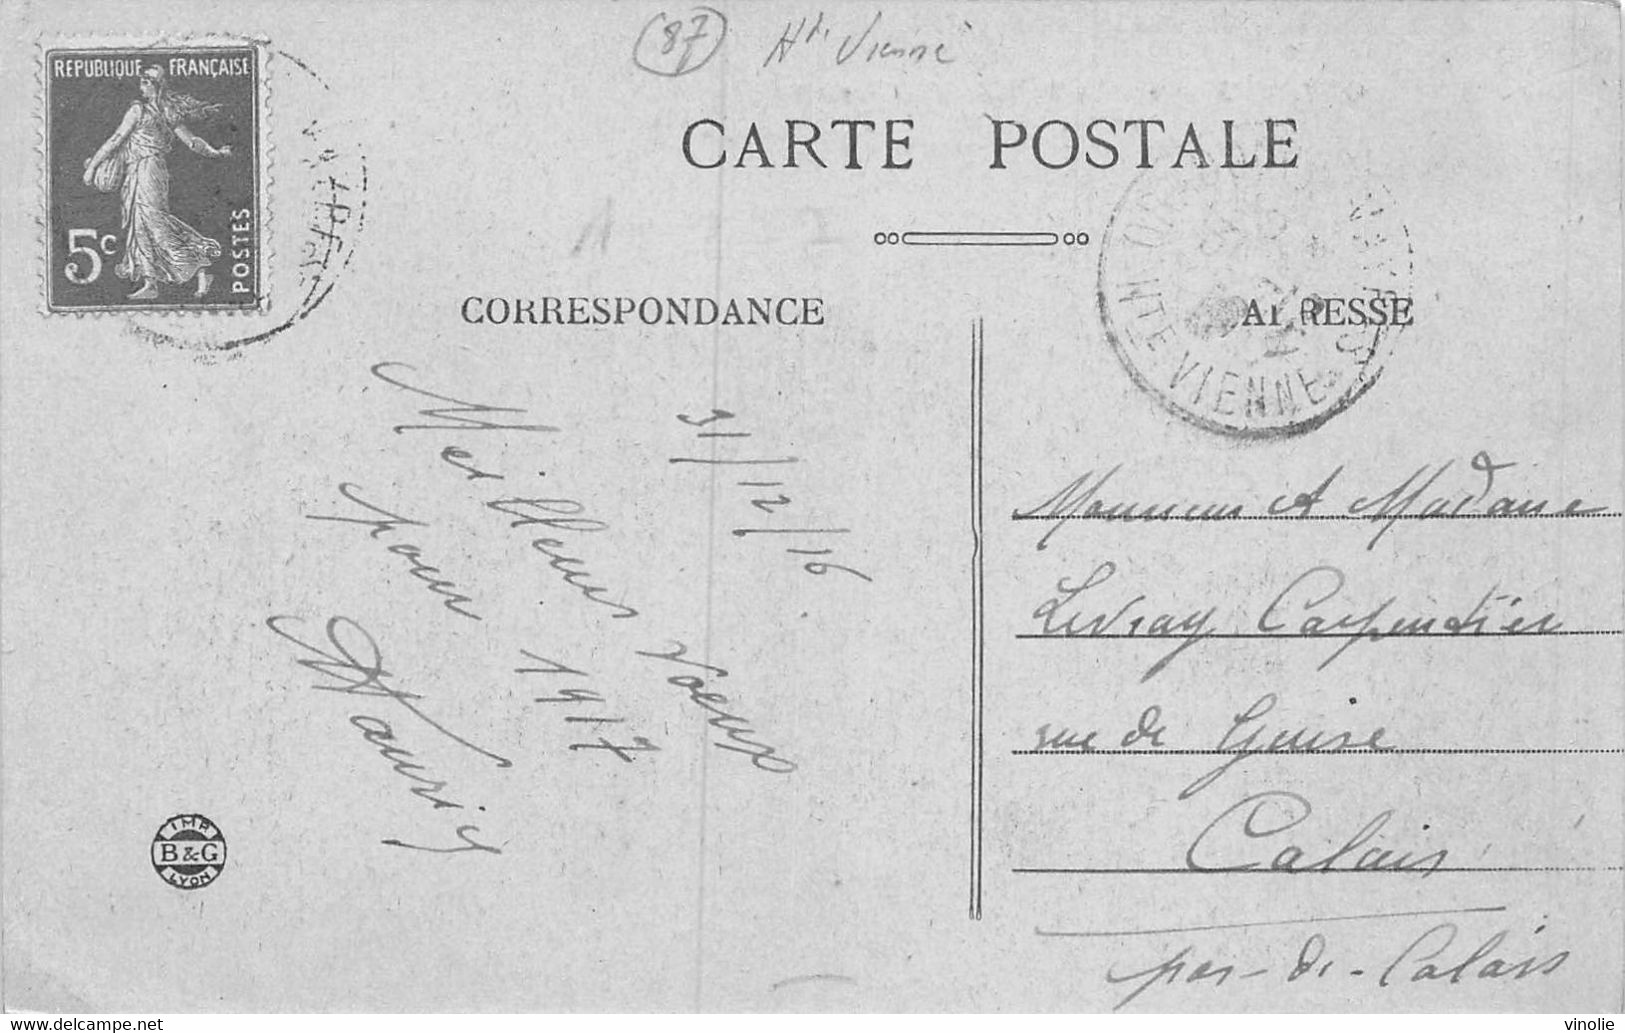 (87) Hte Vienne
REPUBLIQUE FRANÇAISE
5c
POSTES
CARTE POSTALE
CORRESPONDANCE
ADRESSE
HTE VIENNE
31/12/16
Meilleurs Voeux
pour 1917
IMP
B&G
LYON
Monsieur et Madame
Levray Carpentier
rue de Guise
Calais
pas-de-Calais
vinolie